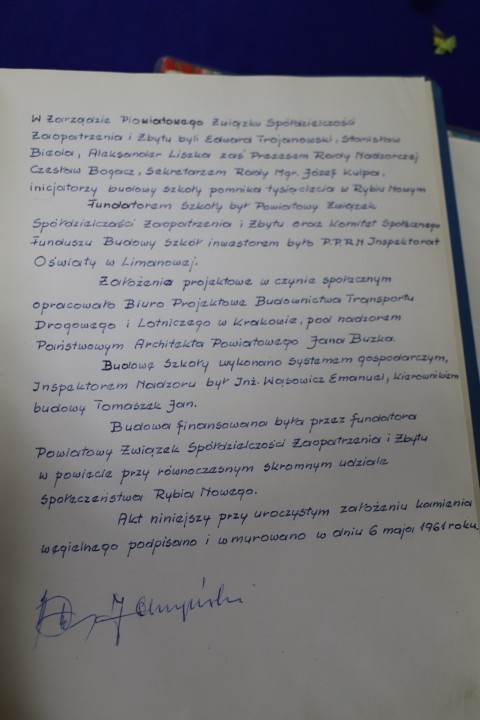 W Zarządzie Powiatowego Związku Spółdzielczości
Zaopatrzenia i Zbytu byli Edward Trojanowski, Stanisław
Bieda, Aleksander Liszka zaś Prezesem Rady Nadzorczej
Czesław Bogacz, Sekretarzem Rady Mgr. Józef Kulpa,
inicjatorzy budowy szkoły pomnika tysiąclecia w Rybiu Nowym
Fundatorem Szkoły był Powiatowy Związek
Spółdzielczości Zaopatrzenia i Zbytu oraz Komitet Społecznego
Funduszu Budowy Szkół inwestorem było P.P.R.N Inspektorat
Oświaty w Limanowej.
Założenia projektowe w czynie społecznym
opracowało Biuro Projektowe Budownictwa Transportu
Drogowego i Lotniczego w Krakowie, pod nadzorem
Państwowym Architekta Powiatowego Jana Buzka.
Budowę Szkoły wykonano systemem gospodarczym,
Inspektorem Nadzoru był Inż. Wąsowicz Emanuel, Kierownikiem
budowy Tomaszek Jan.
Budowa finansowana była przez fundatora
Powiatowy Związek Spółdzielczości Zaopatrzenia i Zbytu
w powiecie przy równoczesnym skromnym udziale
społeczeństwa Rybia Nowego.
Akt niniejszy przy uroczystym założeniu kamienia
węgielnego podpisano i wmurowano w dniu 6 maja 1961 roku.